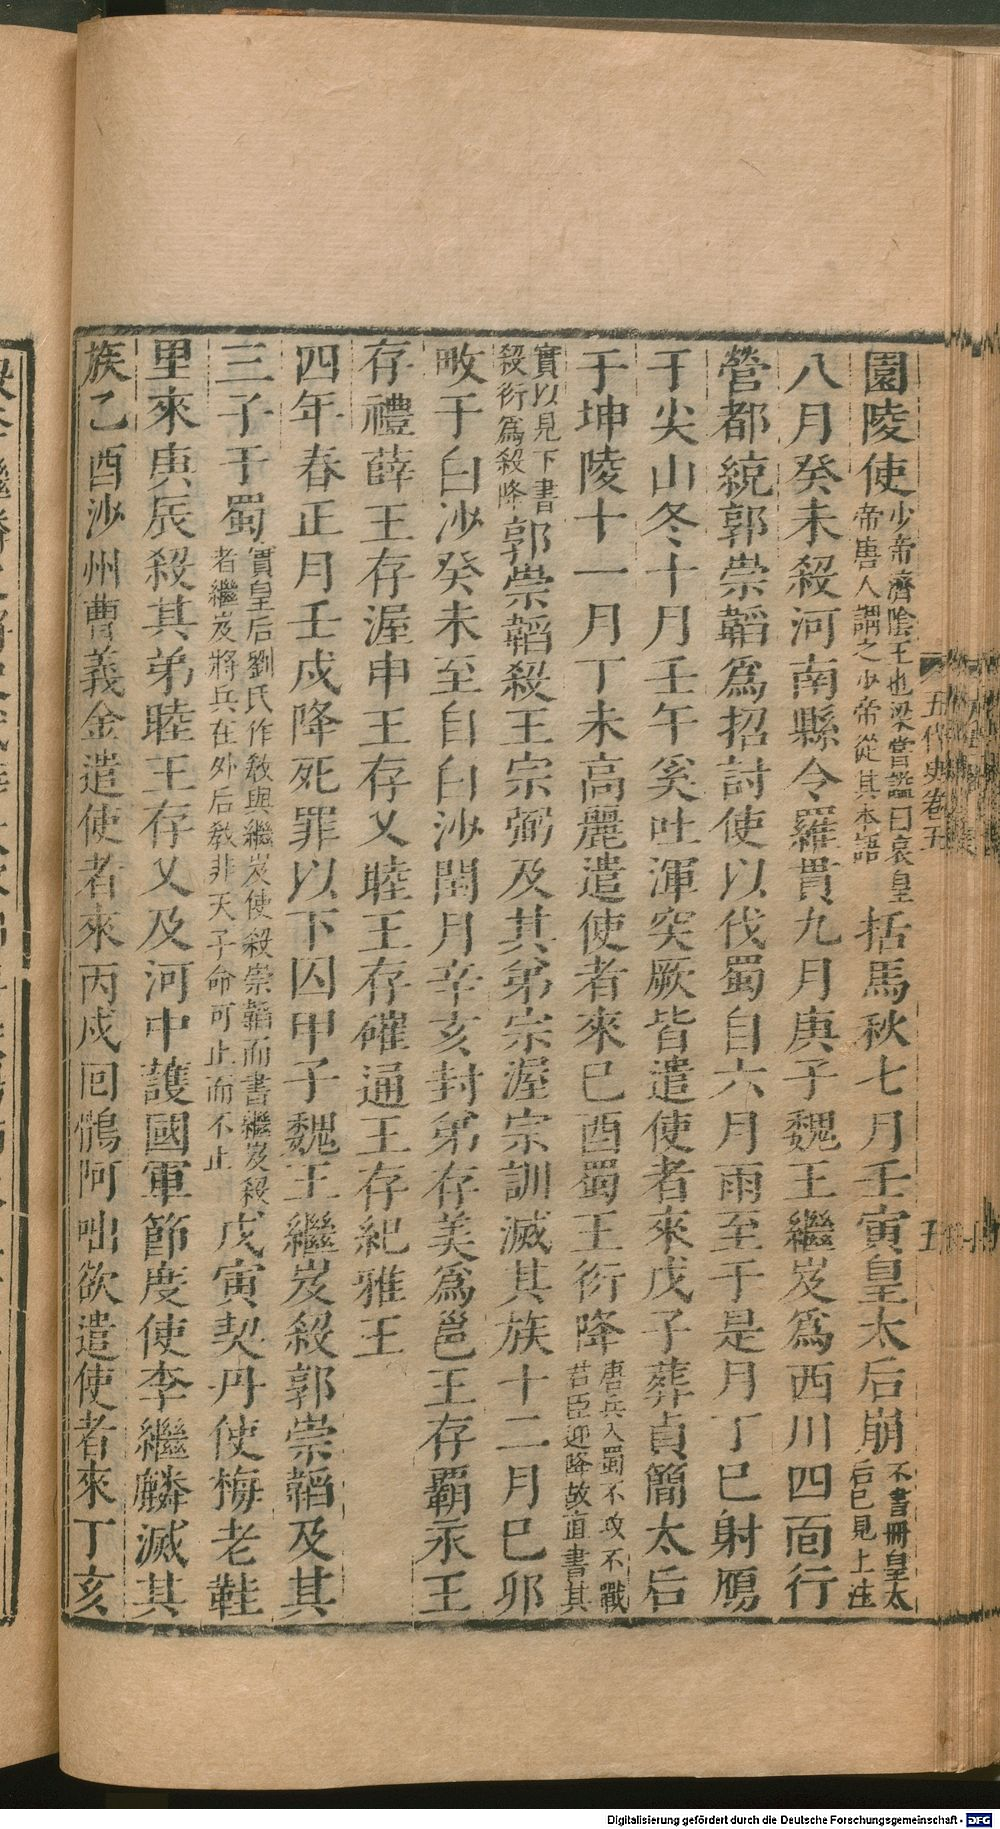 園陵使少帝濟陰王也梁嘗諡曰哀皇帝唐人謂之少帝從其本語括馬秋七月壬寅皇太后崩不書冊皇太后已見上注
八月癸未殺河南縣令羅貫九月庚子魏王繼岌爲西川四面行
營都統郭崇韜爲招討使以伐蜀自六月雨至于是月丁巳射鴈
于尖山冬十月壬午奚吐渾突厥皆遣使者來戊子葬貞簡太后
于坤陵十一月丁未高麗遣使者來己酉蜀王衍降唐兵入蜀不攻不戰君臣迎降故直書其
實以見下書殺衍爲殺降郭崇韜殺王宗弼及其弟宗渥宗訓滅其族十二月己卯
畋于白沙癸未至自白沙閏月辛亥封弟存美爲邕王存霸永王
存禮薛王存渥申王存乂睦王存確通王存紀雅王
四年春正月壬戌降死罪以下囚甲子魏王繼岌殺郭崇韜及其
三子于蜀實皇后劉氏作教與繼岌使殺崇韜而書繼岌殺者繼岌將兵在外后教非天子命可止而不止戊寅契丹使梅老鞋
里來庚辰殺其弟睦王存乂及河中護國軍節度使李繼麟滅其
族乙酉沙州曹義金遣使者來丙戌回鶻阿咄欲遣使者來丁亥
五代史卷五
五
Digitalisierung gefördert durch die Deutsche Forschungsgemeinschaft - DFG